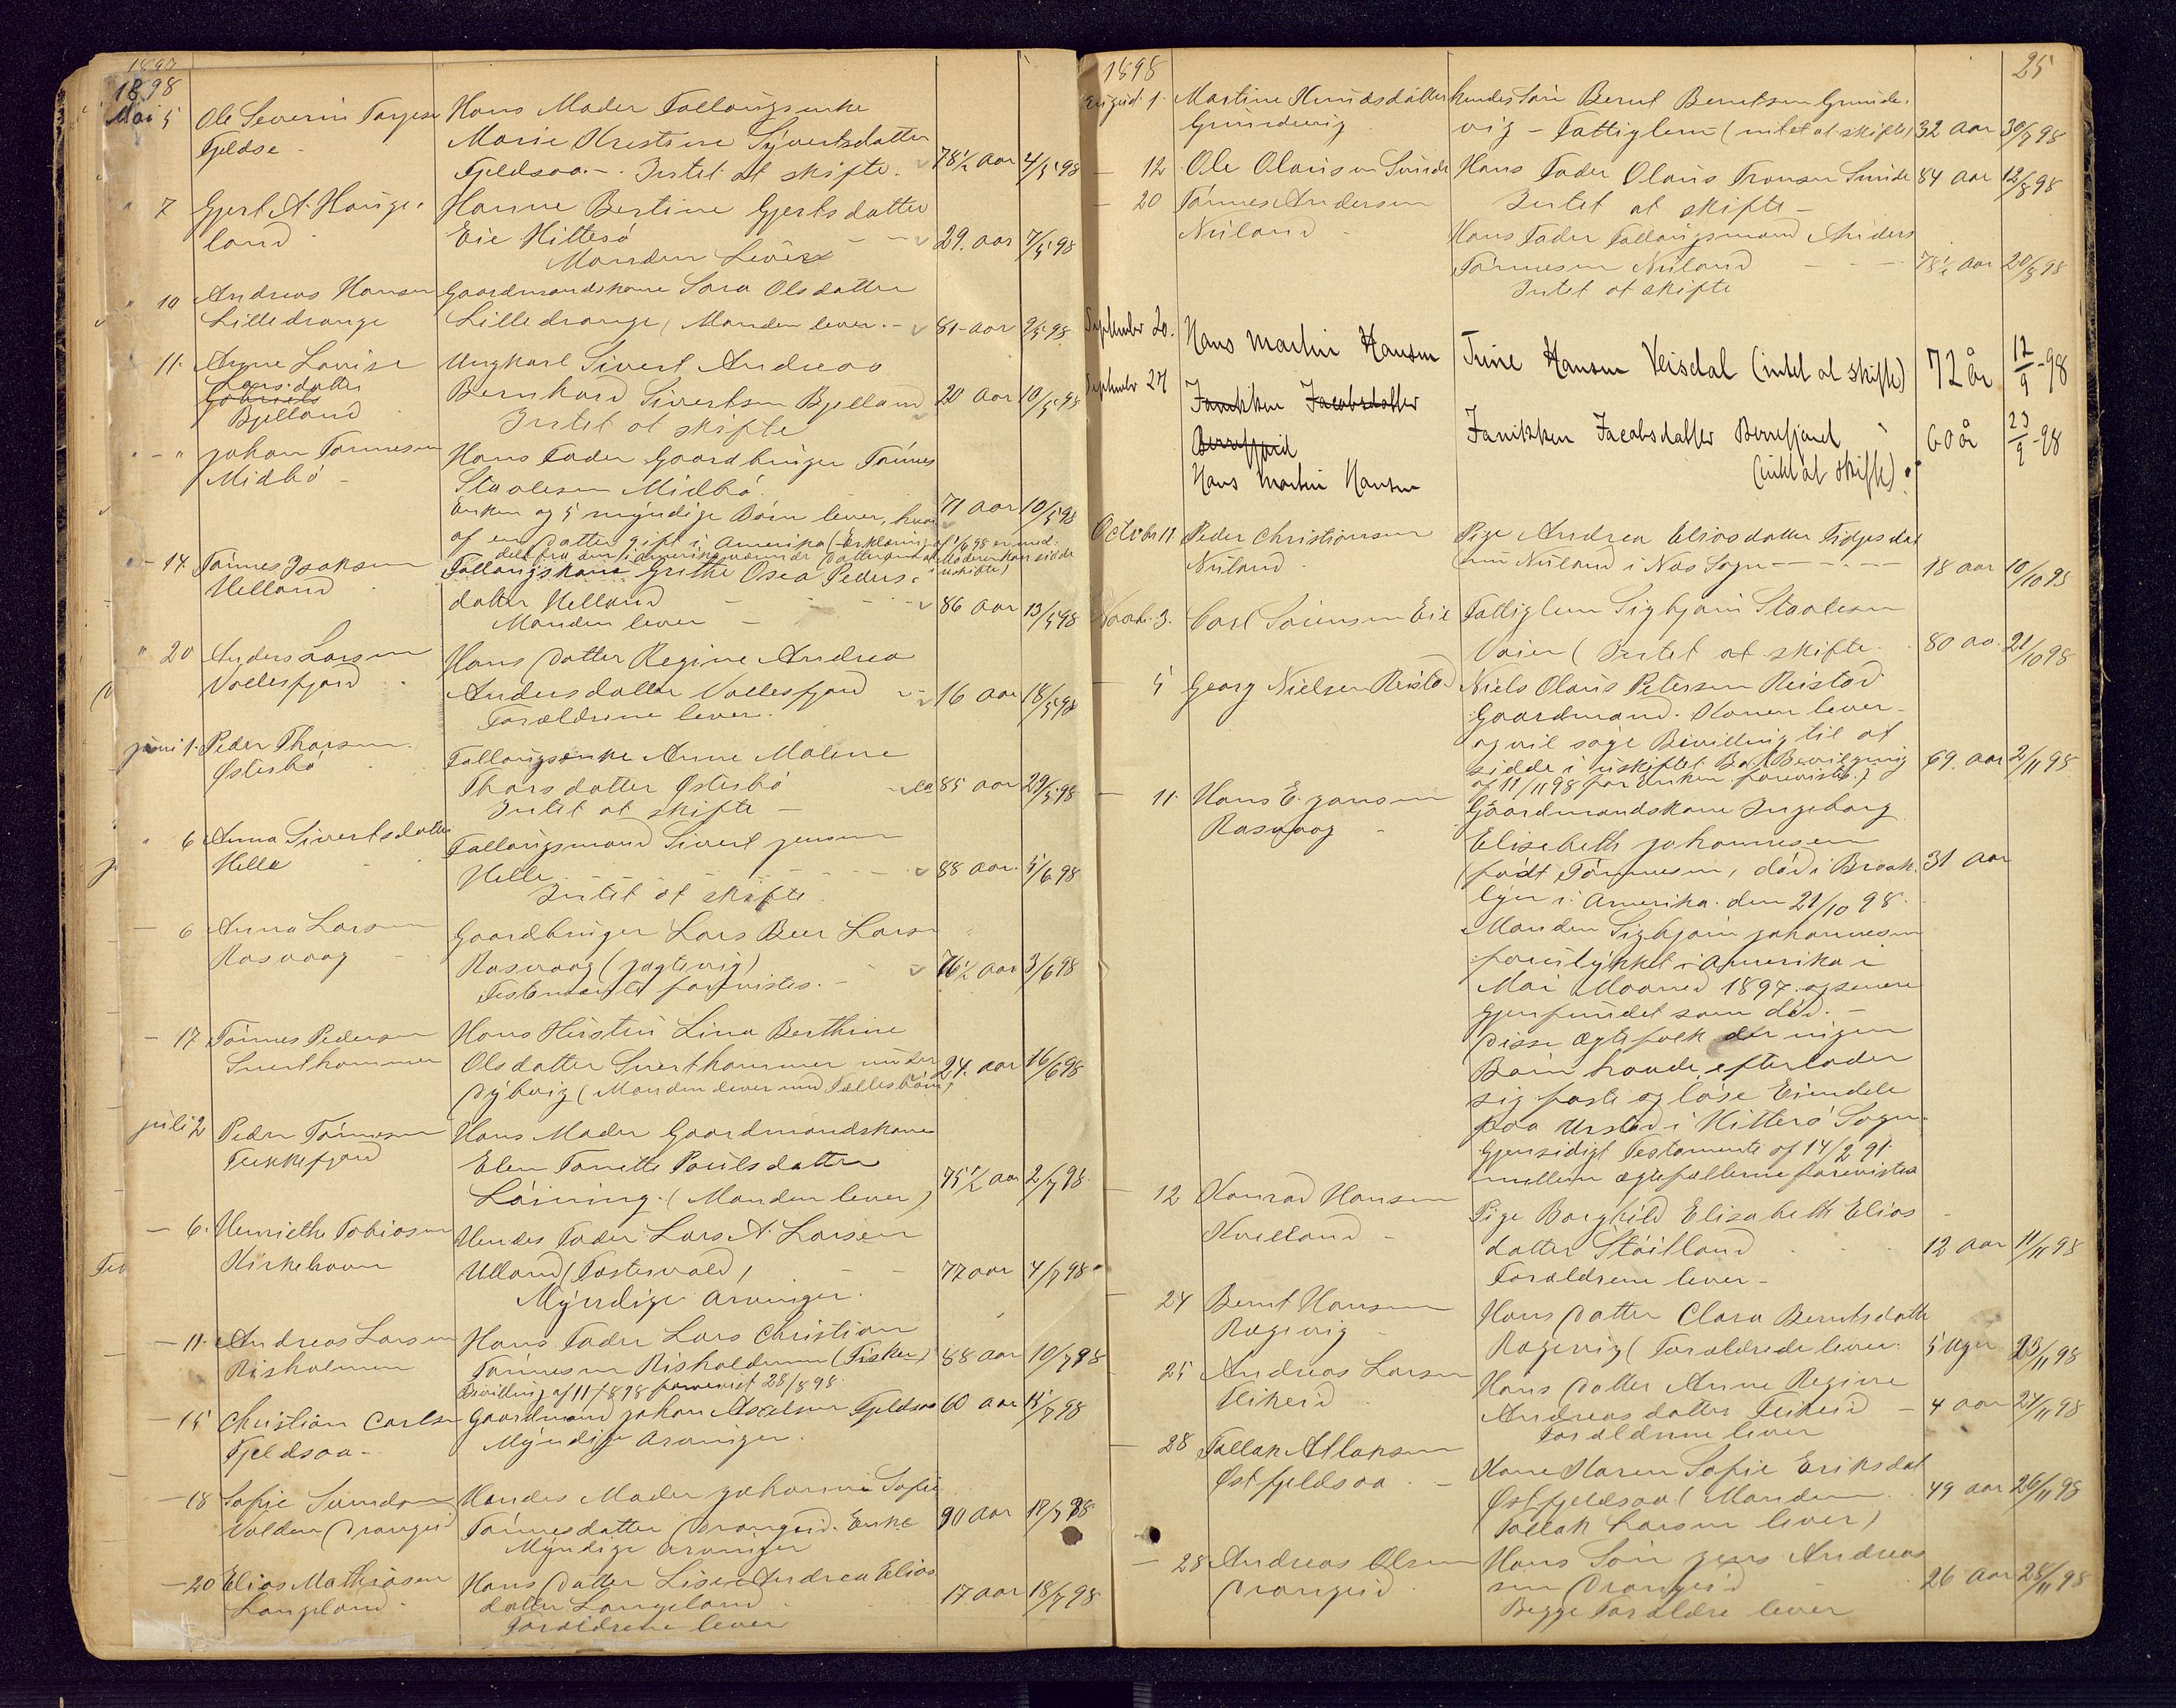 1897
1898
Mai 5
Ole Severin
Fjeldse
Hans Moder Fallougsenke
Marie Kristine Syvertsdatter
Fjeldsaa. - Intet at skifte.
78½ aar 4/5 98
" 7
Gjert A. Hauge-
land
Hanne Bertine Gjertsdatter
Eie Hitterö
Manden Lever
29. aar 7/5 98
" 10
Andreas Hansen
Lilledrange
Gaardmandskone Sara Olsdatter
Lilledrange, Manden lever. -
81 aar 9/5 98
11.
Anne Lovise
Lars-datter
Bjelland
Ungkarl Sivert Andreas
Bernhard Sivertsen Bjelland
Intet at skifte
20 aar 10/5 98
" - "
Johan Tönnesen
Midbö
Hans Fader Gaardbruger Tönnes
Staalesen Midbö.
Enken og 5 myndige Börn lever, hvor
af en Datter gift i Amerika
71 aar 10/5 98
- 14
Tönnes Isaksen
Helland
Grethe Osea Peders-
datter Helland
Manden lever -
86 aar 13/5 98
" 20
Anders Larsen
Vollesfjord
Hans Datter Regine Andrea
Andersdatter Vollesfjord
Foræeldrene lever.
16 aar 18/5 98
juni 1.
Peder Thorsen
Østebö
Anne Malene
Thorsdatter Østebö
Intet at skifte
ca 85 aar 29/5 98
" 6
Anna Sivertsdatter
Helle
Sivert Jensen
Helle
Intet at skifte
88 aar. 5/6 98
- 6
Anna Larsen
Rasvaag
Gaardbruger Lars Beer Larsen
Rasvaag (Jagtevig)
Testamente forevistes. -
76½ aar 3/6 98
- 17
Tönnes Pedersen
Sverthammer
Hans Hustru Lina Berthine
Olsdatter Sverthammer under
Dybvig (Manden lever med Fællesbörn)
24. aar 16/6 98
juli 2
Peder Tönnesen
Fækkefjord
Hans Moder Gaardmandskone
Elen Tonette Poulsdatter
Löining. (Manden lever)
75½ aar 2/7 98
- 6.
Henriette Tobiasen
Kirkehavn
Hendes Fader Lars A. Larsen
Ulland (Fostervold)
Myndige arvinger.
77 aar 4/7 98
- 11.
Andreas Larsen
Risholmen
Hans Fader Lars Christian
Tönnesen Risholmen (Fisker)
Bevilling af 11/8 98 forevist 28/8 98.
88 aar 10/7 98
- 15
Christian Carlsen
Fjeldsaa -
Gaardmand Johan Axelsen Fjeldsaa
Myndige arvinger.
60 aar 15/7 98
- 18
Sofie
Valden Drangeid
Hendes Moder Johanne Sofie
Tönnesdatter Drangeid. Enke
Myndige arvinger
90 aar 18/7 98
- 20
Elias Mathiasen
Langeland
Hans Datter Lise Andrea Elias
datter Langeland
Forældrene lever
17 aar 18/7 98
1898
25
August 1.
Martine Knudsdatter
Grundevig
hendes Sön Bernt Berntsen Grunde-
vig - Fattiglem - (intet at skifte)
32 aar 30/7 98
- 12
Ole Olausen Sunde
Hans Fader Olaus Tronsen Sunde
Intet at skifte -
84 aar 12/8 98
- 20
Tönnes Andersen
Nuland
Hans Fader Anders
Tönnesen Nuland
Intet at skifte
78½ aar 20/8 98
September 20.
Hans Martin Hansen
Trine Hansen Veisdal (intet at skifte)
72 år
12/9 -98
September 27
Janikken Jacobsdatter
Berrefjord
Hans Martin Hansen
Janikken Jacobsdatter Berrefjord
(intet at skifte).
60 år
23/9 -98
October 11
Peder Christiansen
Nuland
Pige Andrea Eliasdatter Fidjesdal
nu Nuland i Næs Sogn
18 aar 10/10 98
Novbr. 3.
Carl Sörensen Eie
Fattiglem Sigbjörn Staalesen
(Intet at skifte.
80 aa. 21/10 98
- 5
Georg Nielsen Reistad
Niels Olaus Petersen Reistad
Gaardmand. Konen lever -
og vil söge Bevilling til at
sidde i uskiftet Bo (Bevilgning
af 11/11 98 for Enken forevistes.)
69. aar 2/11 98
- 11.
Hans E. Jansen
Rasvaag
Gaardmandskone Ingeborg
Elisabeth Johannesen
(födt Tönnesen, död i Brook-
lyn i Amerika den 21/10 98.
Manden Sigbjörn Johannesen
forulykket i Amerika i
Mai Maaned 1897. og senere
gjenfundet som död. -
Disse Ægtefolk der ingen
Börn havde, efterlader
sig faste og löse Eiendele
paa Urstad i Hitterö Sogn.
Gjensidigt Testamente af 14/2 91.
mellem ægtefællerne forevistes
31 aar
- 12
Konrad Hansen
Kvelland -
Pige Borghild Elisabeth Elias
datter Stöitland
Forældrene lever -
12 aar 11/11 98
- 24
Bernt Hansen
Rægevig -
Hans Datter Clara Berntsdatter
Rægevig (Forældrede lever.
5 Uger 23/11 98
25
Andreas Larsen
Fikeid
Hans Datter Anne Regine
Andreasdatter Fikeid
Forældrene lever
4 aar 24/11 98
- 28
Tallak Atlaksen
Østfjeldsaa
Kone Karen Sofie Eriksdat
Østfjeldsaa (Manden
Tallak Larsen lever)
49 aar 26/11 98
- 28
Andreas Olsen
Drangeid
Hans Sön Jens Andreas
sen Drangeid
Begge Forældre lever
26 aar 28/11 98